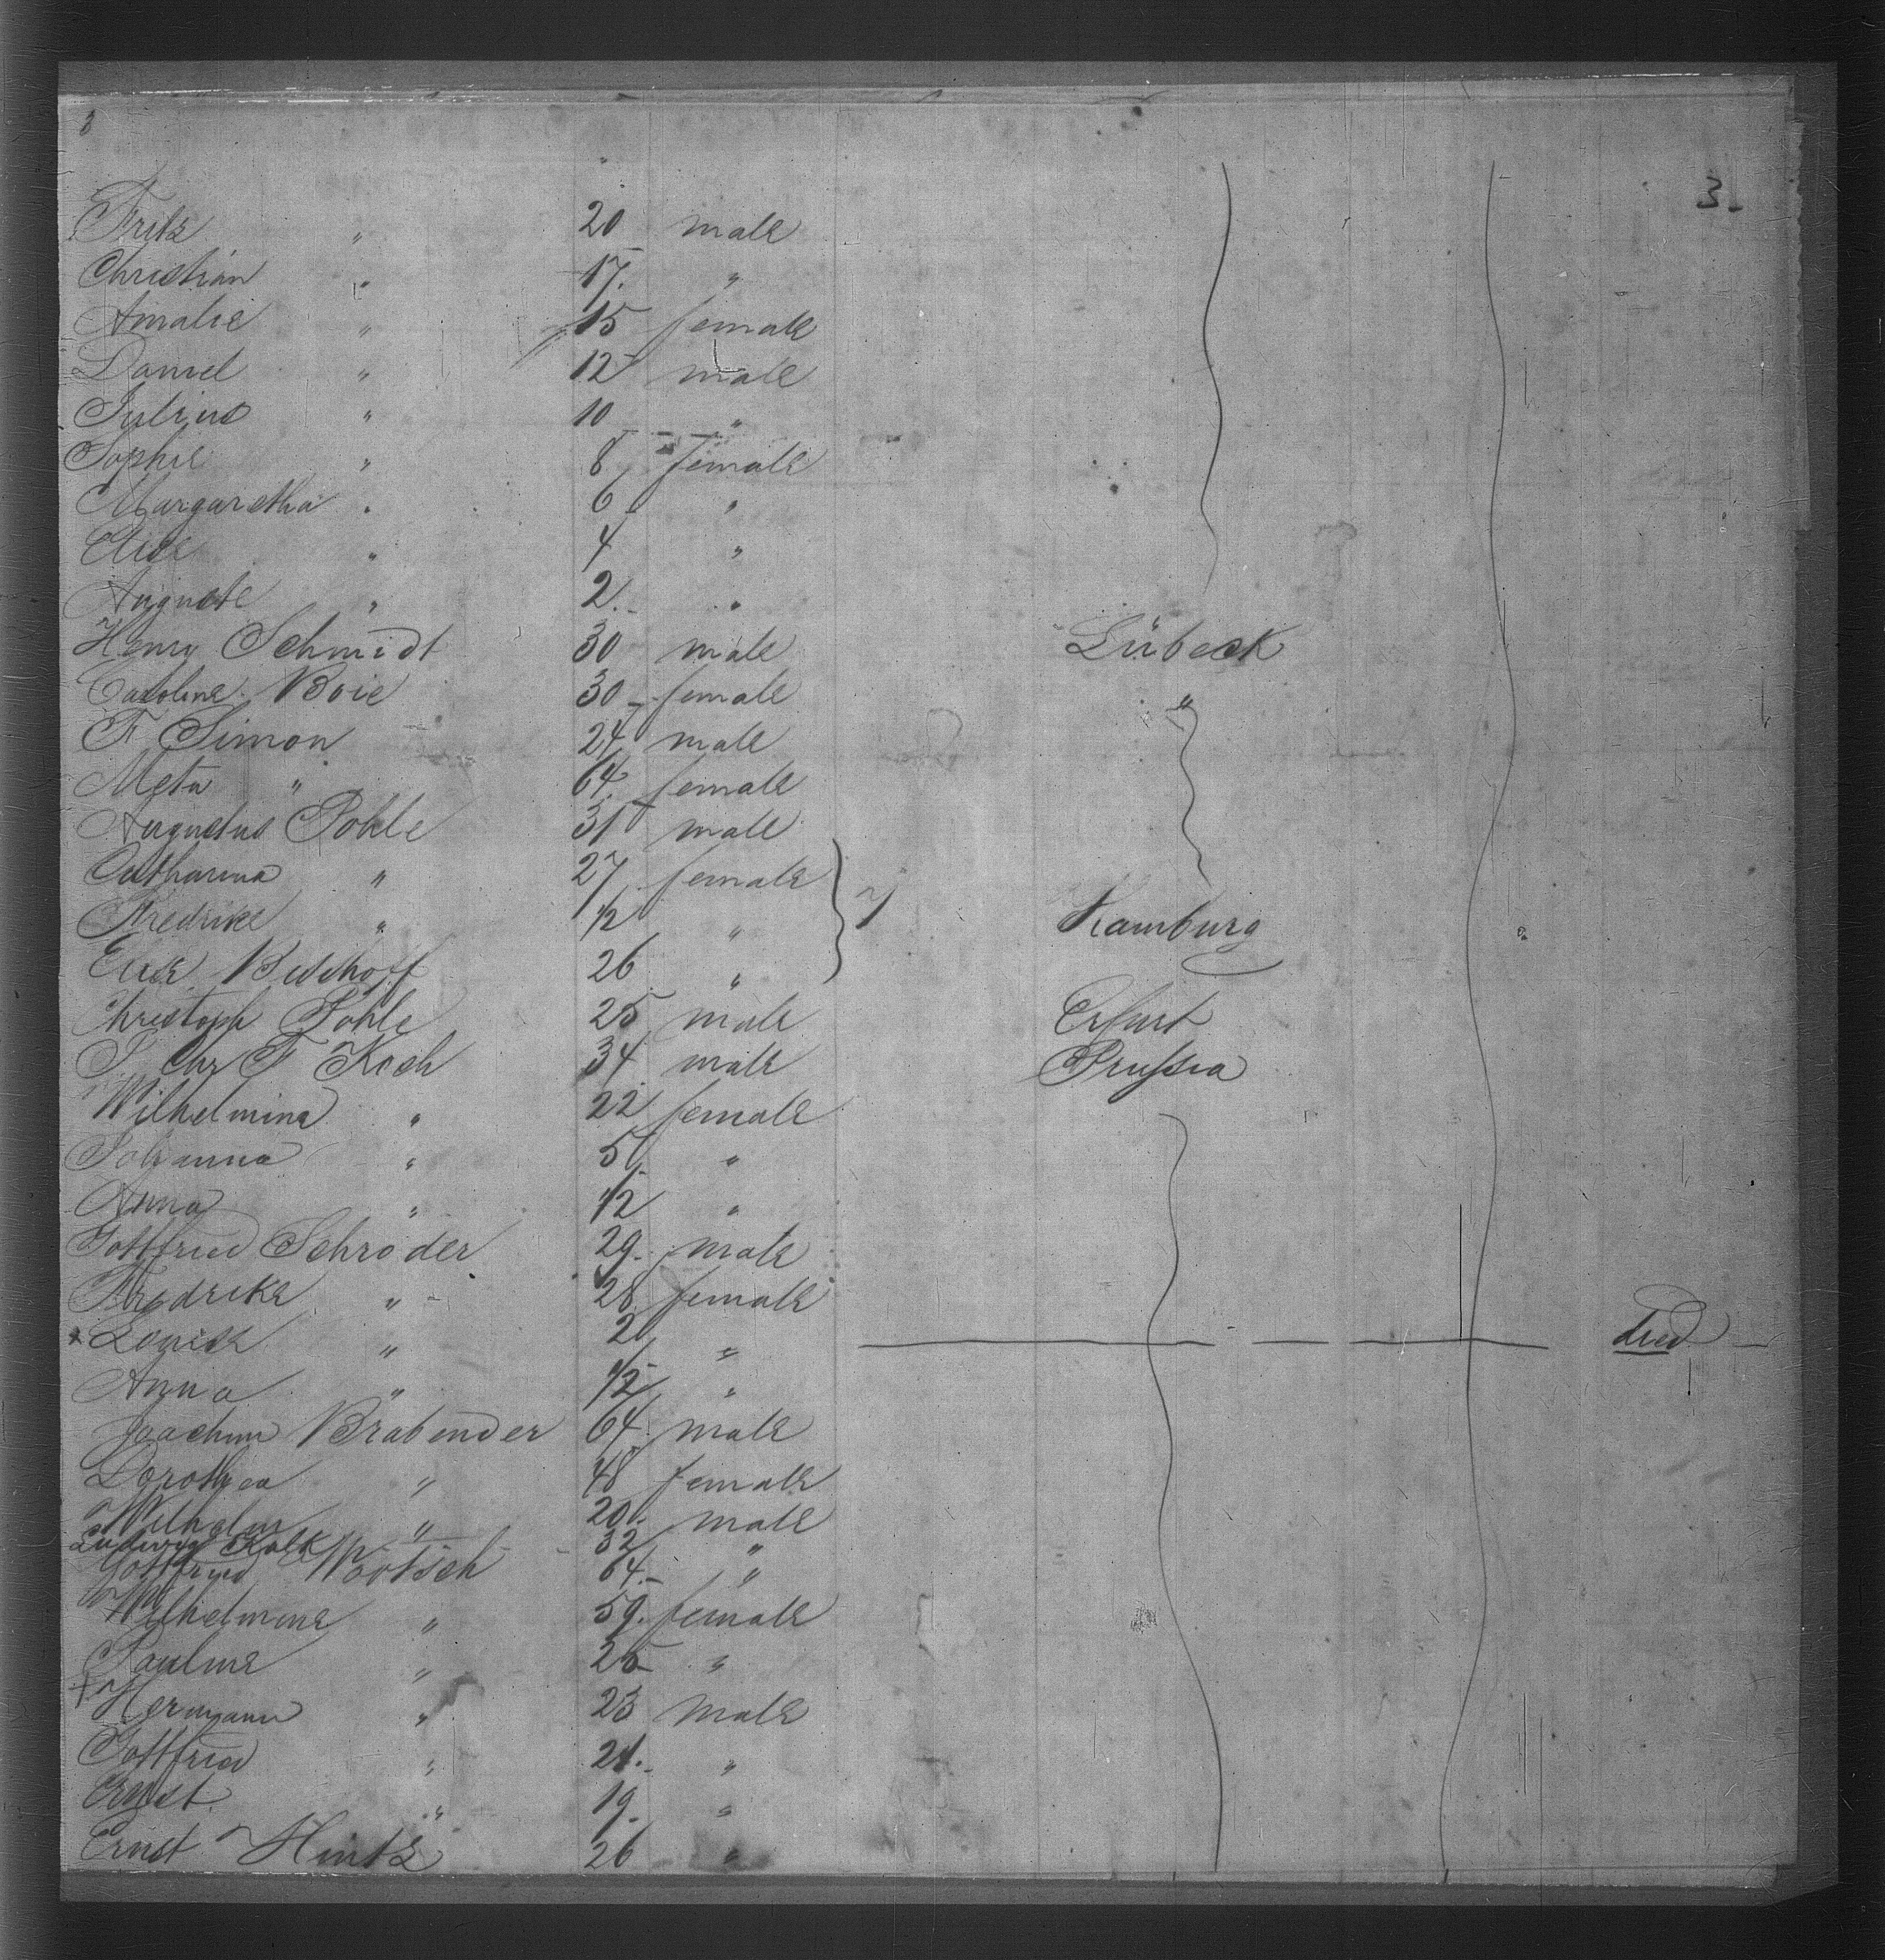 3
Fritz " 20 male
Christian " 17. "
Amalie " 15 female
Daniel " 12 male
Julius " 10 "
Sophie " 8 female
Margaretha " 6 "
Elise " 4 "
Auguste " 2. "
Henry Schmidt 30 male Lübeck
Caroline Boie 30 female "
F Simon 24 male
Meta " 64. female
Augustus Pohle 31 male
Catharina " 27 female
Fredrike " 1/2 "
Hamburg
Elise Bischoff 26 "
Christoph Pohle 25 male Erfurt
J. Chr F Koch 34 male Prussia
Wilhelmina " 22 female
Johanna " 5 "
Anna " 1/2 "
Gottfried Schröder 29. male
Fredrike " 28 female
x Louise " 2 " died
Anna " 1/2 "
Joachim Brabender 64 male
Dorothea " 48 female
Wilhelm " 20. male
Ludwig Kolk 32 "
Gottfried Wootsch 64. "
Wilhelmine " 59. female
Pauline " 25 "
+ Hermann " 23 male
Gottfried " 21. "
Ernst " 19. "
Ernst Hintz 26 "